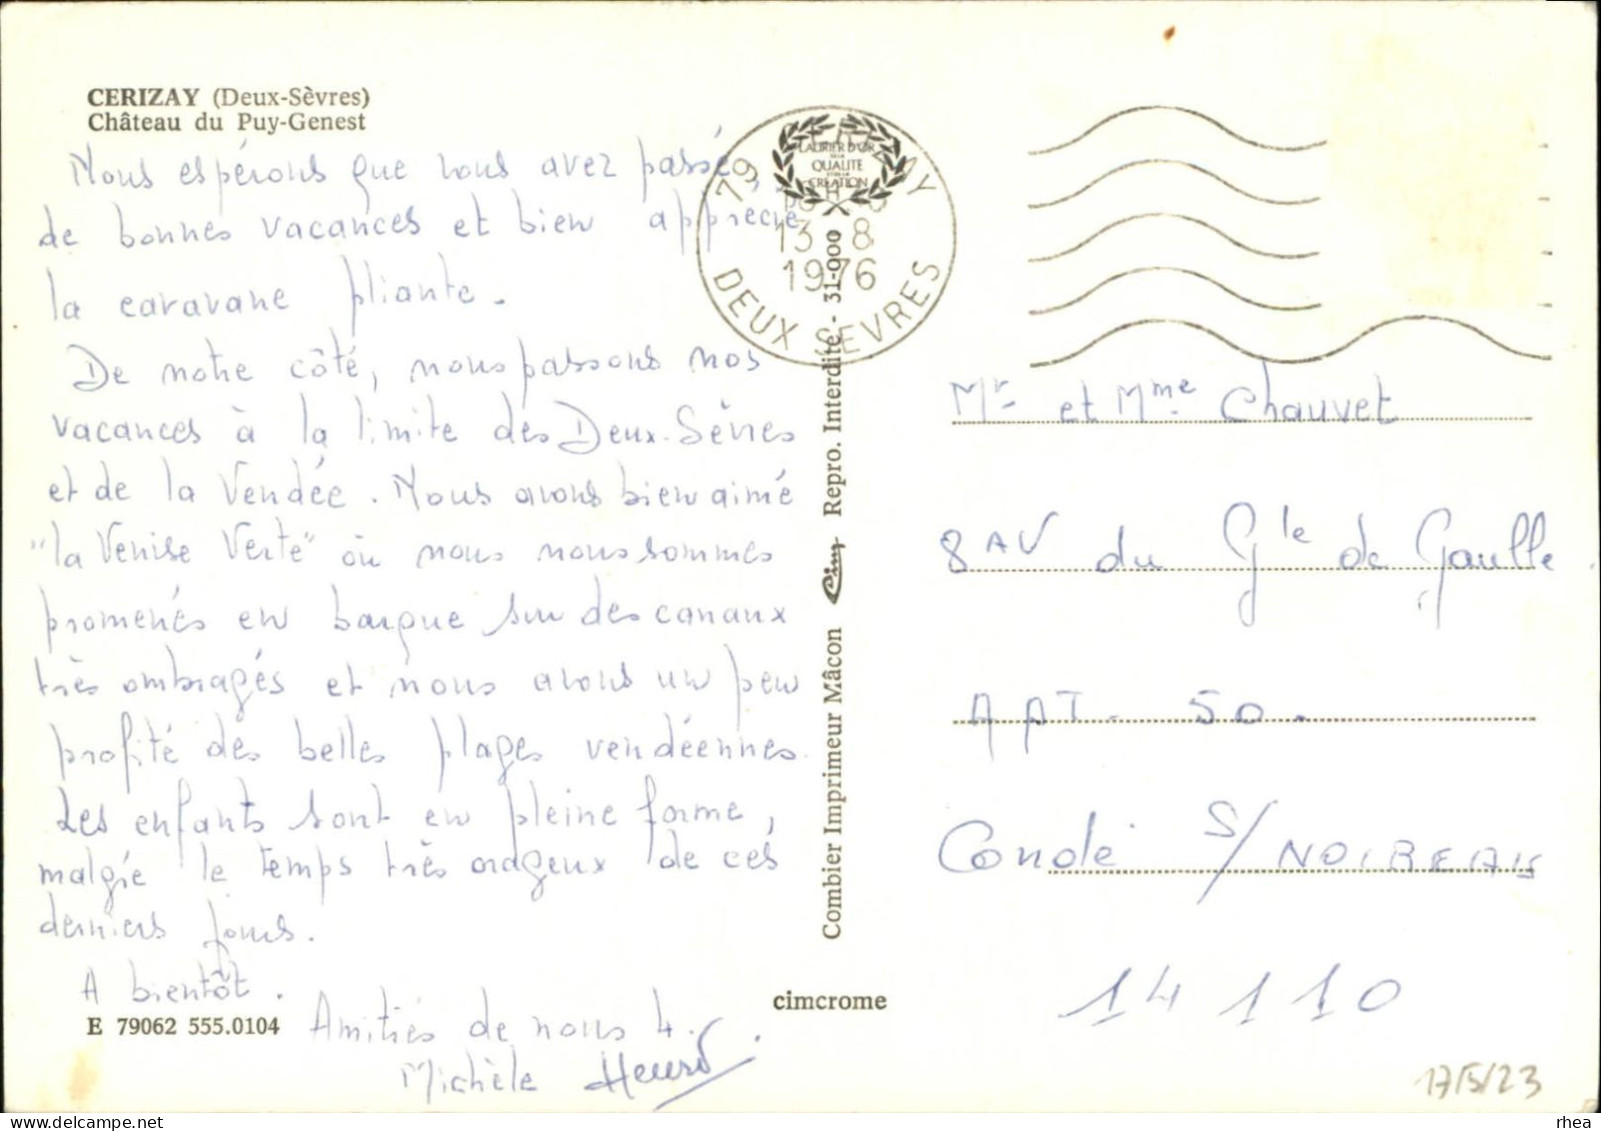 CERIZAY (Deux-Sèvres)
Château du Puy-Genest
Nous espérons que vous avez passé,
de bonnes vacances et bien apprécié
la caravane pliante.
De notre côté, nous passons nos
vacances à la limite des Deux-Sèvres
et de la Vendée. Nous avons bien aimé
"la Venise Verte" où nous nous sommes
promenés en barque sur des canaux
très ombragés et nous avons un peu
profité des belles plages vendéennes.
Les enfants sont en pleine forme,
malgré le temps très orageux de ces
derniers jours.
A bientôt.
E 79062 555.0104
Amitiés de nous 4.
Michèle
79 CERIZAY
13-8
1976
DEUX SEVRES
LAURIER D'OR
DE LA
QUALITE
ET DE LA
CREATION
Combier Imprimeur Mâcon Cim Repro. Interdite - 31-000
cimcrome
Mr et Mme Chauvet
8 AV du Gle de Gaulle
APT. 50.
Condé S/ NOIREAU
14110
17/5/23
rhea